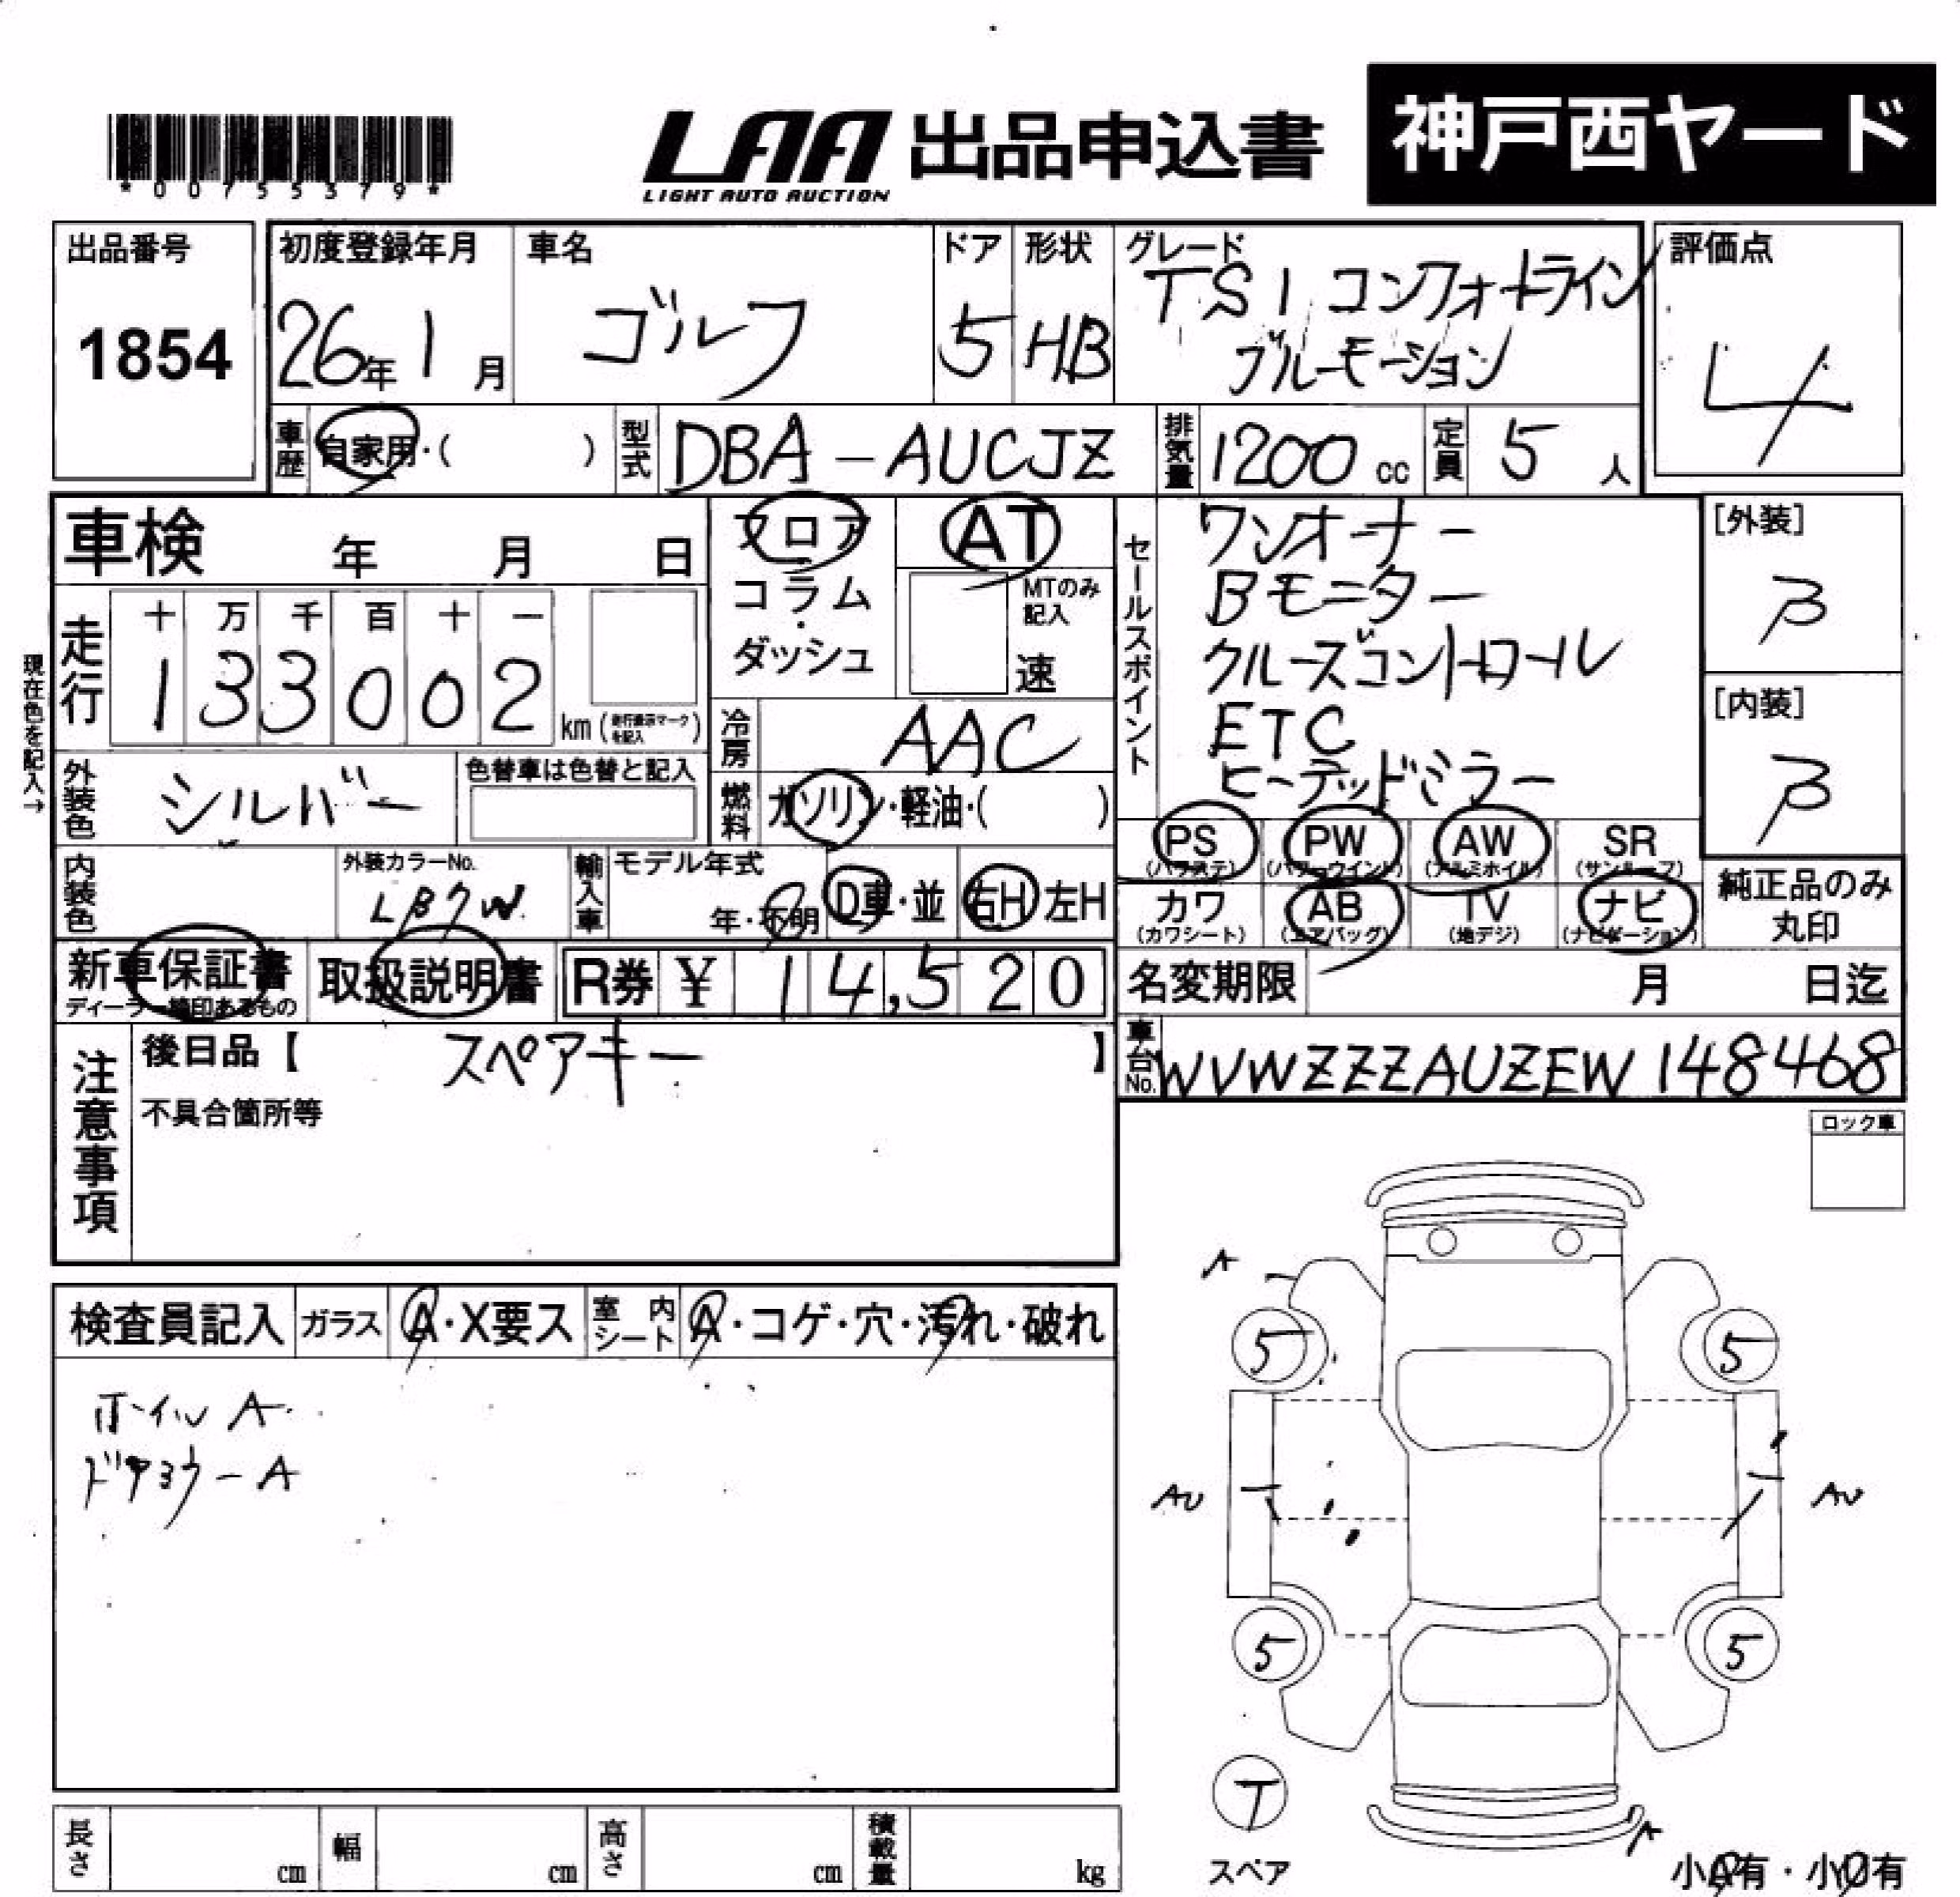 *00755379*
LAA 出品申込書 神戸西ヤード
LIGHT AUTO AUCTION
出品番号 1854
初度登録年月 26年1月
車名 ゴルフ
ドア 5
形状 HB
グレード TSI コンフォートライン
ブルーモーション
評価点 4
車歴 自家用・( )
型式 DBA-AUCJZ
排気量 1200cc
定員 5人
車検 年 月 日
フロア
コラム
・
ダッシュ
AT
MTのみ
記入
速
セールスポイント
ワンオーナー
Bモニター
クルーズコントロール
ETC
ヒーテッドミラー
[外装] B
[内装] B
現在色を記入→
走行 十 万 千 百 十 一
1 3 3 0 0 2
km (走行表示マークを記入)
冷房 AAC
外装色 シルバー
色替車は色替と記入
燃料 ガソリン・軽油・( )
PS (パワステ) PW (パワーウインド) AW (アルミホイル) SR (サンルーフ)
カワ (カワシート) AB (エアバッグ) TV (地デジ) ナビ (ナビゲーション)
純正品のみ
丸印
内装色
外装カラーNo. LB7W
輸入車 モデル年式 年・不明
D車・並 右H 左H
新車保証書
ディーラー捺印あるもの
取扱説明書
R券 ¥ 14,520
名変期限 月 日迄
車台No. WVWZZZAUZEW148468
注意事項
後日品【 スペアキー 】
不具合箇所等
ロック車
検査員記入 ガラス A・X要ス 室内シート A・コゲ・穴・汚れ・破れ
ホイル A
A
A
5 5
AU AU
5 5
T
スペア
A
小A有・小U有
長さ cm 幅 cm 高さ cm 積載量 kg